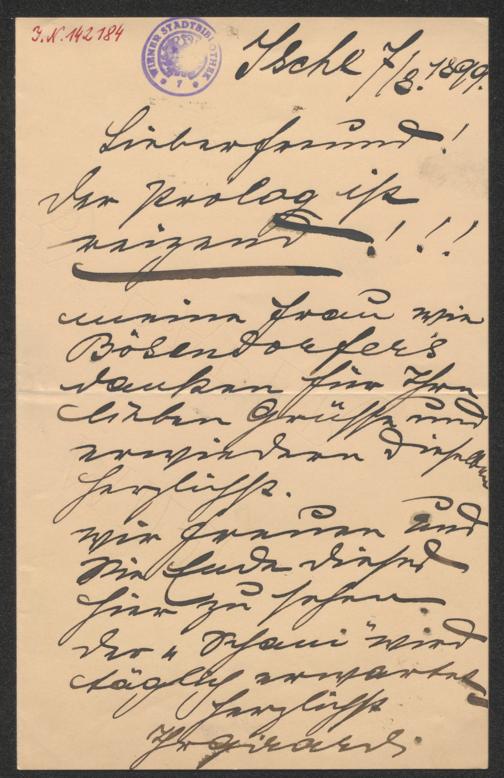 J.N. 142184
WIENER STADTBIBLIOTHEK
Ischl 7/8. 1899.
Lieber Freund!
Der Prolog ist
reizend!!!
meine Frau wie
Bösendorfer's
danken für Ihre
lieben Grüsse und
erwiedern dieselben
herzlichst.
wir freuen uns
Sie Ende dieses
hier zu sehen
der „Schani" wird
täglich erwartet
herzlichst
Ihr Girardi.